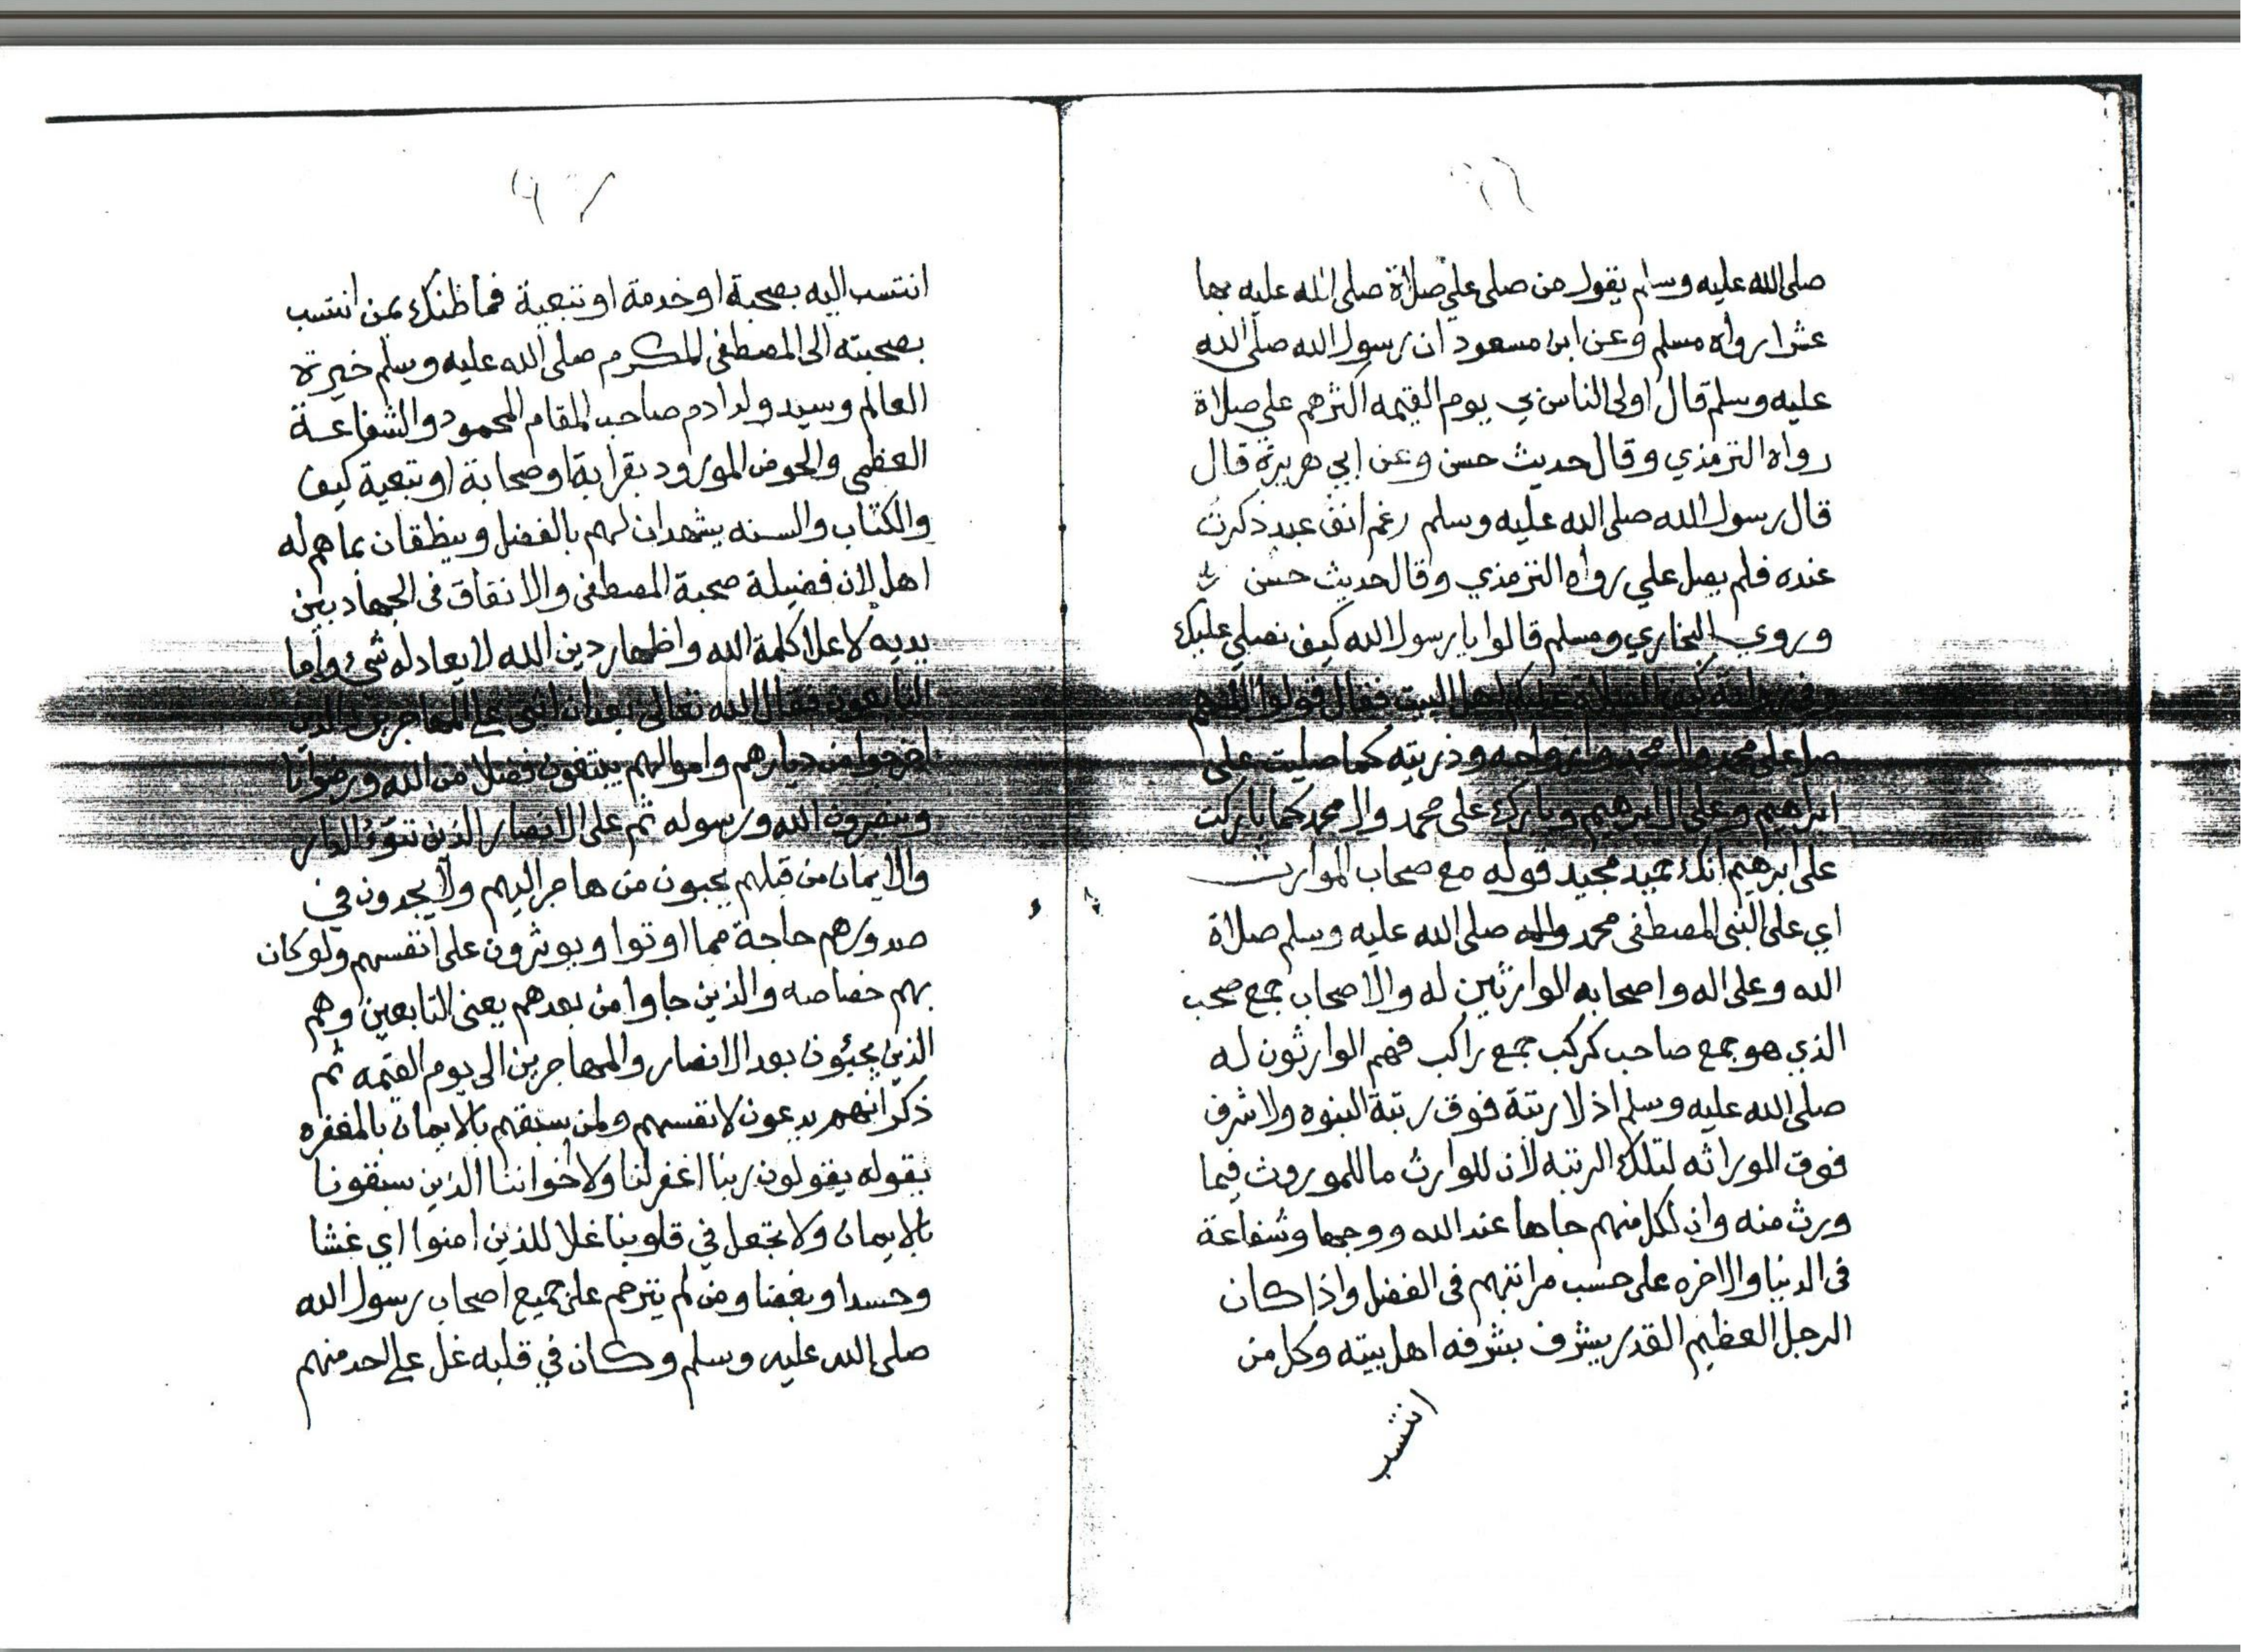 صلى الله عليه وسلم يقول من صلى علي صلاة صلى الله عليه بها
عشرا رواه مسلم وعن ابن مسعود ان رسول الله صلى الله
عليه وسلم قال اولى الناس بي يوم القيمه اكثرهم علي صلاة
رواه الترمذي وقال حديث حسن وعن ابي هريرة قال
قال رسول الله صلى الله عليه وسلم رغم انف عبد ذكرت
عنده فلم يصل علي رواه الترمذي وقال حديث حسن
وروى البخاري ومسلم قالوا يا رسول الله كيف نصلي عليك
وفي رواية كيف الصلاة عليكم اهل البيت فقال قولوا اللهم
صل على محمد وال محمد وازواجه وذريته كما صليت على
ابراهيم وعلى ال ابرهيم وبارك على محمد وال محمد كما باركت
على ابرهيم انك حميد مجيد قوله مع صحاب الموارث
اي على النبي المصطفى محمد واله صلى الله عليه وسلم صلاة
الله وعلى اله واصحابه الوارثين له والاصحاب جمع صحب
الذي هو جمع صاحب كركب جمع راكب فهم الوارثون له
صلى الله عليه وسلم اذ لا رتبة فوق رتبة النبوه ولا شرف
فوق الوراثه لتلك الرتبه لان للوارث ما للموروث فيما
ورث منه وان لكل منهم جاها عند الله ووجها وشفاعة
في الدنيا والاخره على حسب مراتبهم في الفضل واذا كان
الرجل العظيم القدر يشرف بشرفه اهل بيته وكل من
انتسب
انتسب اليه بصحبة او خدمة او تبعية فما ظنك بمن انتسب
بصحبته الى المصطفى المكرم صلى الله عليه وسلم خيرة
العالم وسيد ولد ادم صاحب المقام المحمود والشفاعة
العظمى والحوض المورود بقرابة او صحابة او تبعية كيف
والكتاب والسنه يشهدان لهم بالفضل وينطقان بما هم له
اهل لان فضيلة صحبة المصطفى والانفاق في الجهاد بين
يديه لاعلا كلمة الله واظهار دين الله لا يعادله شيء واما
التابعون فقال الله تعالى بعد ان اثنى على المهاجرين الذين
اخرجوا من ديارهم واموالهم يبتغون فضلا من الله ورضوانا
وينصرون الله ورسوله ثم على الانصار الذين تبوؤ الدار
والايمان من قبلهم يحبون من هاجر اليهم ولا يجدون في
صدورهم حاجة مما اوتوا ويوثرون على انفسهم ولو كان
بهم خصاصه والذين جاوا من بعدهم يعني التابعين وهم
الذين يجيئون بعد الانصار والمهاجرين الى يوم القيمه ثم
ذكر انهم يدعون لانفسهم ولمن سبقهم بالايمان بالمغفره
بقوله يقولون ربنا اغفر لنا ولاخواننا الذين سبقونا
بالايمان ولا تجعل في قلوبنا غلا للذين امنوا اي غشا
وحسدا وبغضا ومن لم يترحم على جميع اصحاب رسول الله
صلى الله عليه وسلم وكان في قلبه غل على احد منهم